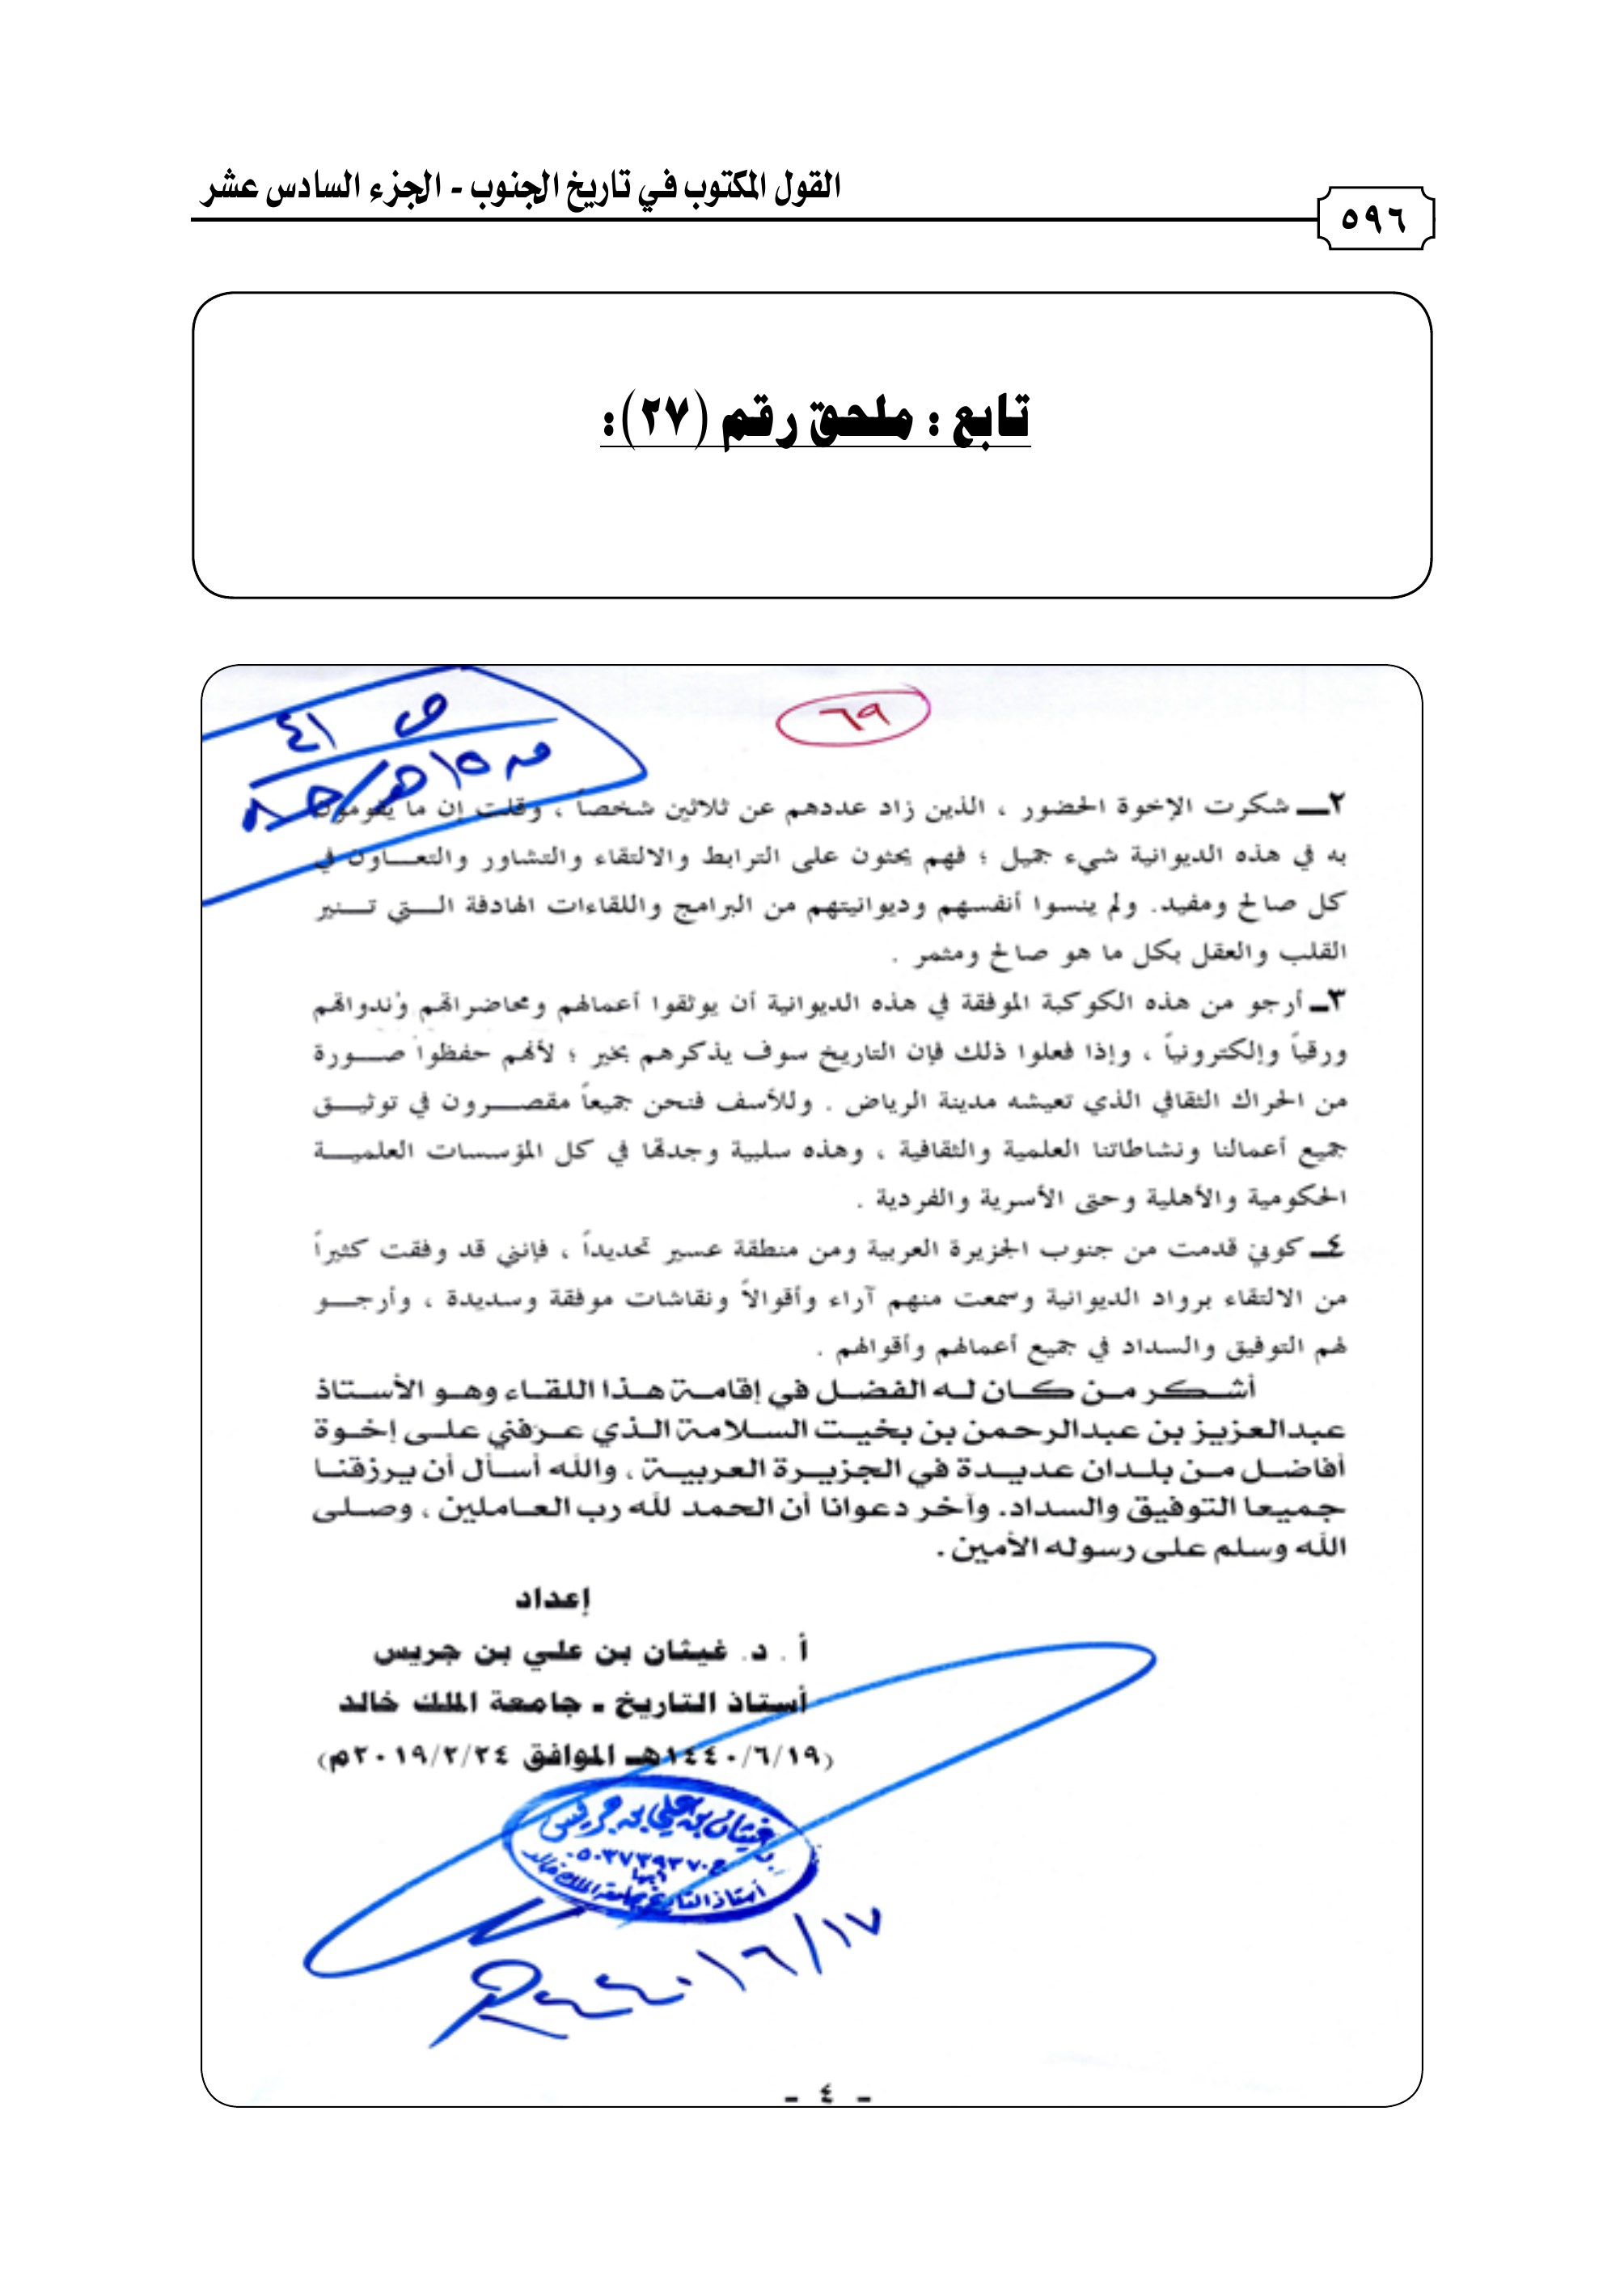 القول المكتوب في تاريخ الجنوب - الجزء السادس عشر
٥٩٦
تابع : ملحق رقم (٢٧):
٦٩
ص ٤١
٢ــ شكرت الإخوة الحضور ، الذين زاد عددهم عن ثلاثين شخصاً ، وقلت إن ما يقومون
به في هذه الديوانية شيء جميل ؛ فهم يحثون على الترابط والالتقاء والتشاور والتعـــاون في
كل صالح ومفيد. ولم ينسوا أنفسهم وديوانيتهم من البرامج واللقاءات الهادفة الـــتي تـــنير
القلب والعقل بكل ما هو صالح ومثمر .
٣ــ أرجو من هذه الكوكبة الموفقة في هذه الديوانية أن يوثقوا أعمالهم ومحاضراتهم وندواتهم
ورقياً وإلكترونياً ، وإذا فعلوا ذلك فإن التاريخ سوف يذكرهم بخير ؛ لأنهم حفظوا صـــورة
من الحراك الثقافي الذي تعيشه مدينة الرياض . وللأسف فنحن جميعاً مقصـــرون في توثيـــق
جميع أعمالنا ونشاطاتنا العلمية والثقافية ، وهذه سلبية وجدتها في كل المؤسسات العلميـــة
الحكومية والأهلية وحتى الأسرية والفردية .
٤ــ كوني قدمت من جنوب الجزيرة العربية ومن منطقة عسير تحديداً ، فإنني قد وفقت كثيراً
من الالتقاء برواد الديوانية وسمعت منهم آراء وأقوالاً ونقاشات موفقة وسديدة ، وأرجـــو
لهم التوفيق والسداد في جميع أعمالهم وأقوالهم .
أشـكر مـن كـان لـه الفضـل في إقامـة هـذا اللقـاء وهـو الأسـتاذ
عبدالعزيز بن عبدالرحمن بن بخيـت السـلامة الـذي عـرفني علـى إخـوة
أفاضـل مـن بلـدان عديـدة في الجزيـرة العربيـة ، والله أسـأل أن يـرزقنـا
جميعا التوفيق والسداد. وآخر دعوانا أن الحمد لله رب العـاملين ، وصـلى
الله وسلم على رسوله الأمين .
إعداد
أ . د. غيثان بن علي بن جريس
أستاذ التاريخ ـ جامعة الملك خالد
(١٤٤٠/٦/١٩هـ الموافق ٢٠١٩/٢/٢٤م)
غيثان بن علي بن جريس
٠٥٠٣٧٣٩٣٧٠
أبها
أستاذ التاريخ بجامعة الملك خالد
- ٤ -